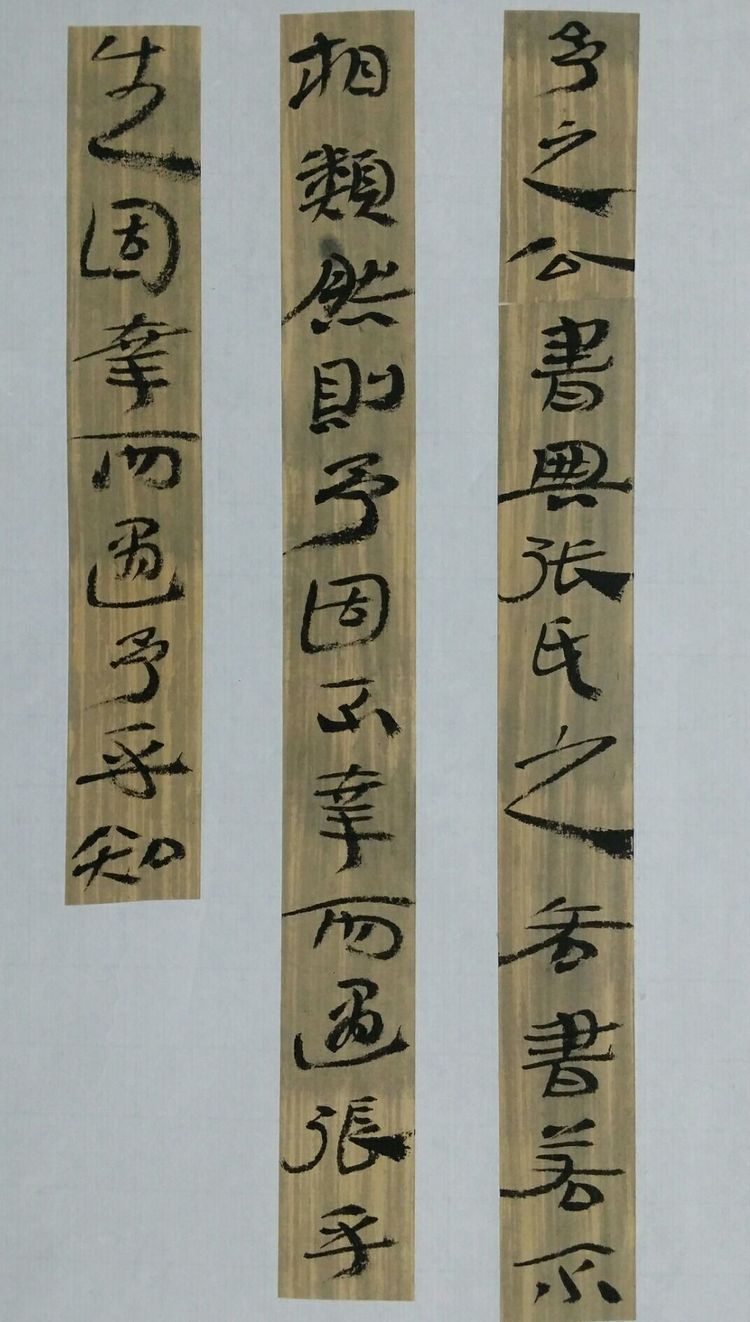 予之公書與張氏之吝書若不
相類然則予固不幸而遇張乎
生固幸而遇予乎知